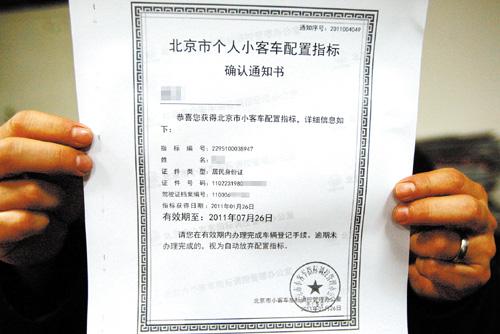 通知序号：2011004049
北京市个人小客车配置指标
确认通知书
恭喜您获得北京市小客车配置指标。详细信息如
下：
指 标 编 号：2295100038947
姓 名：
证 件 类 型：居民身份证
证 件 号 码：1102231980
驾驶证档案编号：110006
指标获得日期：2011年01月26日
有效期至：2011年07月26日
请您在有效期内办理完成车辆登记手续。逾期未
办理完成的，视为自动放弃配置指标。
北京市小客车指标调控管理办公室
2011年01月26日